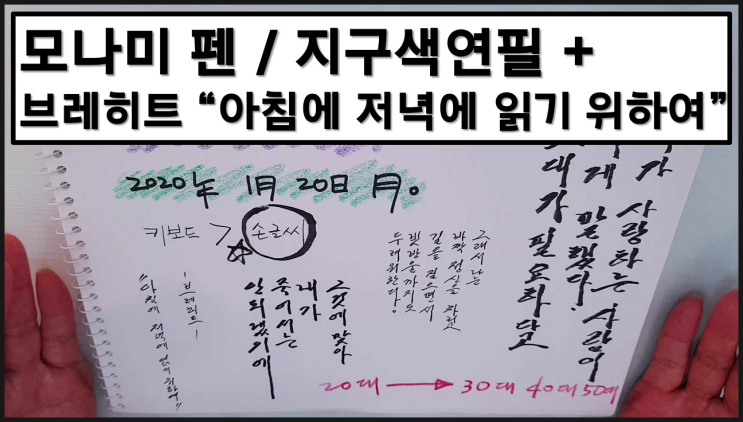 모나미 펜 / 지구색연필 +
브레히트 “아침에 저녁에 읽기 위하여”
2020年 1月 20日 月。
키보드 > 손글씨
가 사랑하는 사람이
게 말했다.
대가 필요하다고
그래서 나는
바짝 정신을 차리고
길을 걸으면서
빗방울까지도
두려워한다.
그것에 맞아
내가
죽어서는
안되겠기에
-브레히트-
“아침에 저녁에 읽기 위하여”
20대 → 30대 40대 50대